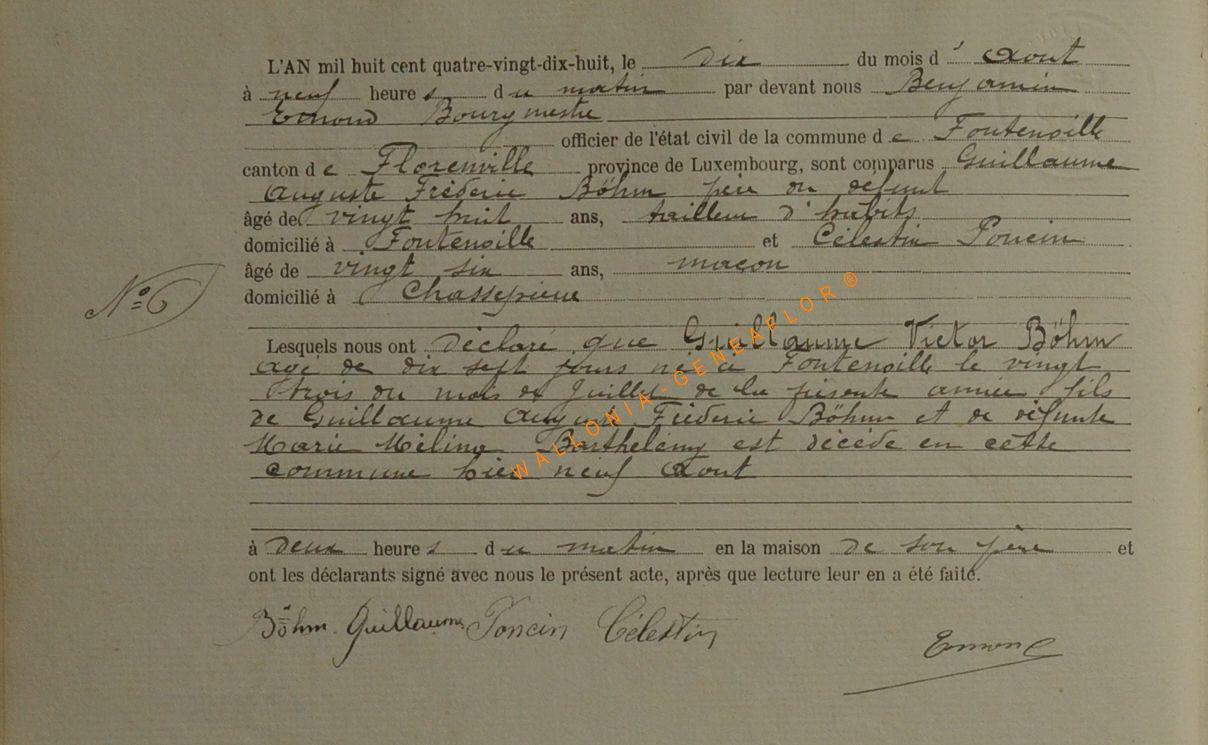 L'AN mil huit cent quatre-vingt-dix-huit, le dix du mois d'Aout
à neuf heures du matin par devant nous Benjamin
Emond Bourgmestre
officier de l'état civil de la commune de Fontenoille
canton de Florenville province de Luxembourg, sont comparus Guillaume
Auguste Fréderic Böhm père du défunt
âgé de vingt huit ans, tailleur d'habits
domicilié à Fontenoille et Célestin Poncin
âgé de vingt six ans, maçon
N° 6
domicilié à Chassepierre
Lesquels nous ont déclaré que Guillaume Victor Böhm
agé de dix sept jours né à Fontenoille le vingt
trois du mois de Juillet de la présente année, fils
de Guillaume August Fréderic Böhm et de défunte
Marie Mélina Barthelemy est décédé en cette
commune hier neuf Aout
à deux heures du matin en la maison de son père et
ont les déclarants signé avec nous le présent acte, après que lecture leur en a été faite.
Böhm Guillaume Poncin Célestin
Emond
WALLONIA-GENEAFLOR©